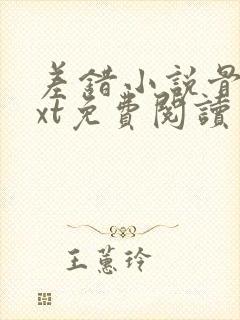 差錯小說骨
xt免費閱讀
王蕙玲